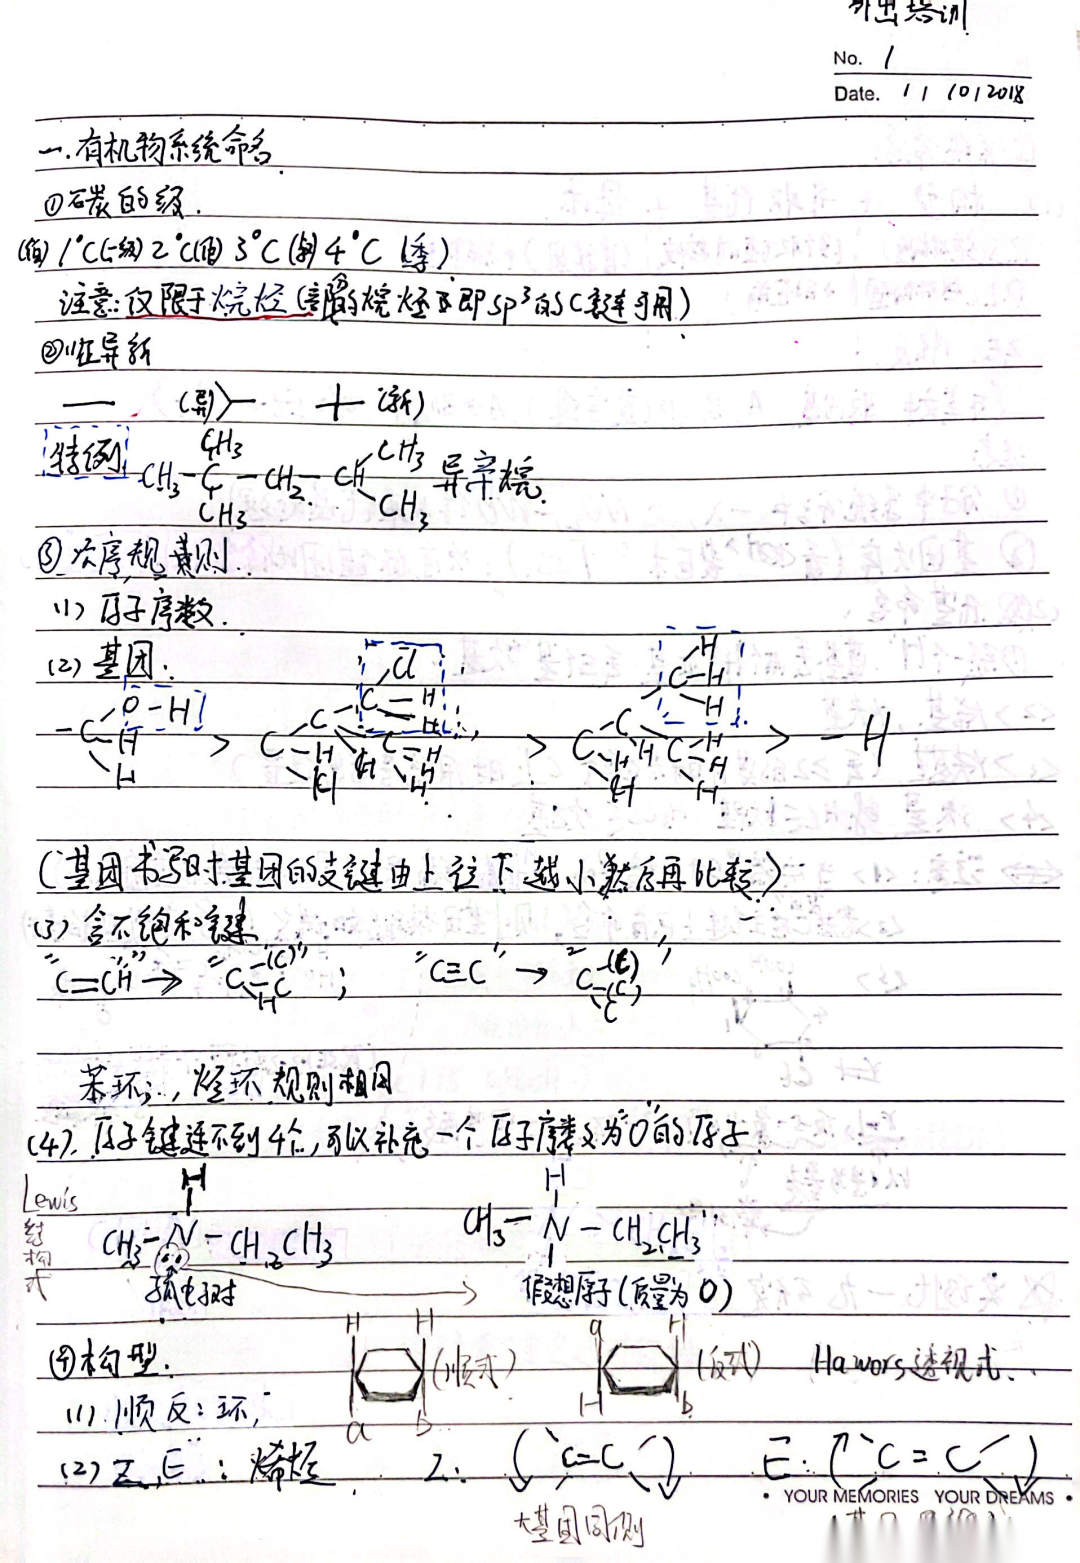 外出培训
No. 1
Date. 11 10 2018
一.有机物系统命名
①碳的级.
(伯) 1°C(一级) 2°C(仲) 3°C(叔) 4°C (季)
注意:仅限于烷烃 的烷烃 即sp³的C 可用)
②正异新
— (异) (新)
特例
CH₃
CH₃-C-CH₂-CH CH₃ 异辛烷.
CH₃ CH₃
③次序规则
(1) 原子序数.
(2)基团.
-C O-H H H > C C C Cl H H > C C C H H H > -H
(基团书写时基团的支链由上往下越小然后再比较)
(3)含不饱和键
"C=CH" → "C-(C) H C" ; "C≡C" → "C-(C) (C) C"
苯环:,烃环规则相同
(4).原子键连不到4个,可以补充一个原子序数为"0"的原子.
Lewis结构式
H H
CH₃-N-CH₂CH₃ CH₃-N-CH₂CH₃
孤电子对 → 假想原子(质量为0)
④构型.
H H a b (顺式) a H H b (反式) Hawors透视式.
(1)顺反:环,
(2)Z,E:烯烃 Z: C=C E: C=C
大基团同侧
YOUR MEMORIES YOUR DREAMS